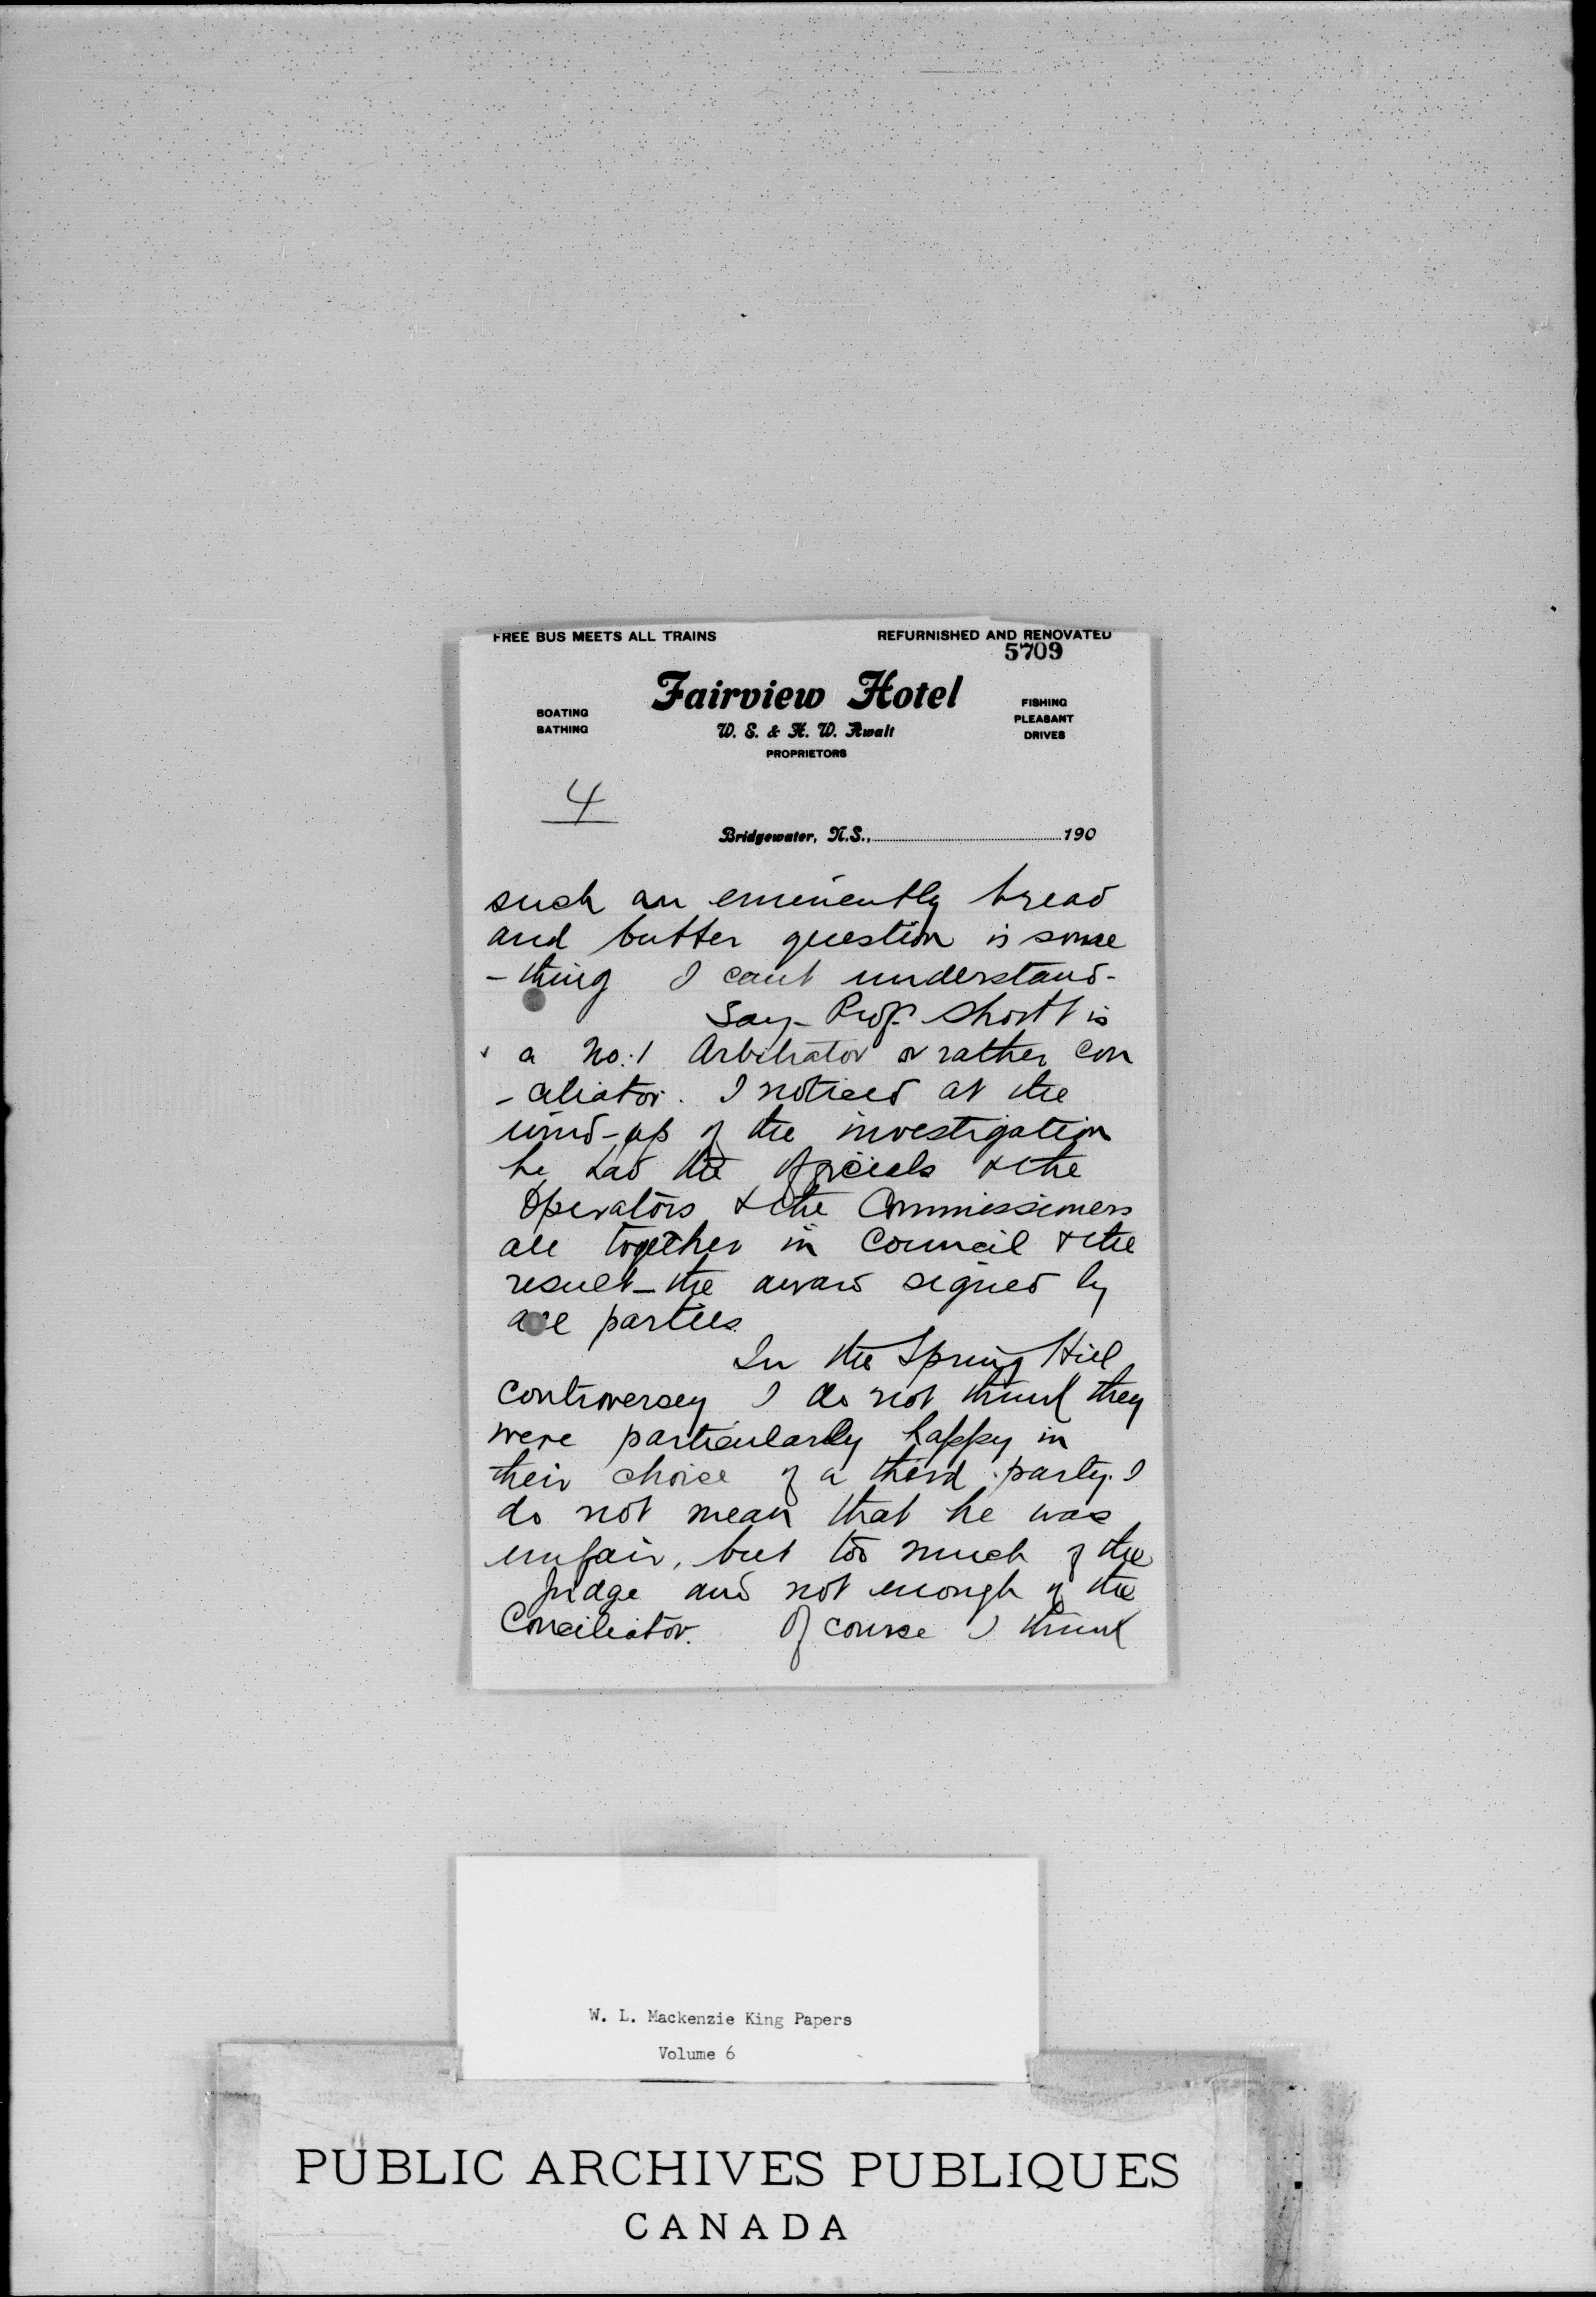 FREE BUS MEETS ALL TRAINS
REFURNISHED AND RENOVATED
5709
Fairview Hotel
BOATING
BATHING
W. S. & H. W. Awalt
PROPRIETORS
FISHING
PLEASANT
DRIVES
4
Bridgewater, N.S., 190
such an eminently bread
and butter question is some
-thing I cant understand-
Say- Prof. Shortt is
a No.1 Arbitrator or rather con
-ciliator. I noticed at the
wind-up of the investigation
he had the officials & the
Operators & the Commissioners
all together in Council & the
result - the award signed by
all parties.
In the Spring Hill
controversey I do not think they
were particularly happy in
their choice of a third party. I
do not mean that he was
unfair, but too much of the
Judge and not enough of the
Conciliator. Of course I think
W. L. Mackenzie King Papers
Volume 6
PUBLIC ARCHIVES PUBLIQUES
CANADA